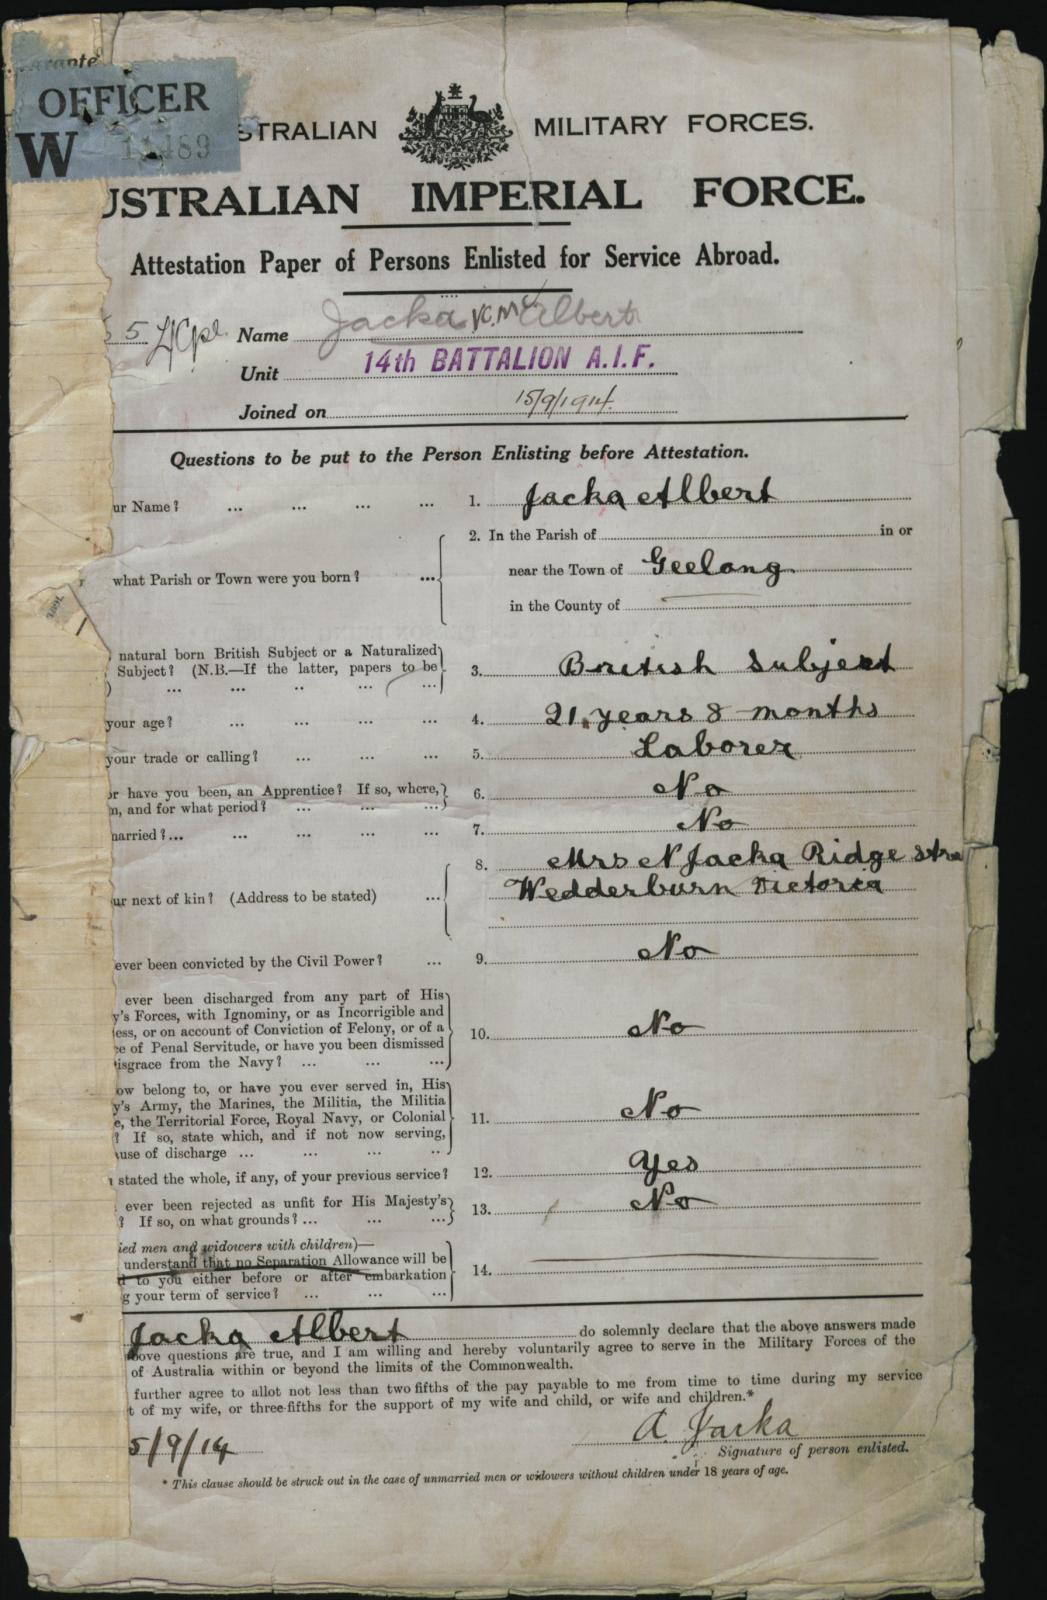 OFFICER
W 11489
STRALIAN MILITARY FORCES.
USTRALIAN IMPERIAL FORCE.
Attestation Paper of Persons Enlisted for Service Abroad.
5 L/Cpl Name Jacka V.C. M.C. Albert
Unit 14th BATTALION A.I.F.
Joined on 15/9/1914.
Questions to be put to the Person Enlisting before Attestation.
ur Name? ... ... ... ... 1. Jacka Albert
2. In the Parish of in or
what Parish or Town were you born? ... near the Town of Geelong
in the County of
natural born British Subject or a Naturalized
Subject? (N.B.—If the latter, papers to be 3. British Subject
) ... ... .. ... ...
your age? ... ... ... ... 4. 21 years 8 months
your trade or calling? ... ... ... 5. Laborer
or have you been, an Apprentice? If so, where, 6. No
n, and for what period? ... ... ...
married?... ... ... ... ... 7. No
8. Mrs N Jacka Ridge Stre
ur next of kin? (Address to be stated) ... Wedderburn Victoria
ever been convicted by the Civil Power? ... 9. No
ever been discharged from any part of His
y's Forces, with Ignominy, or as Incorrigible and
less, or on account of Conviction of Felony, or of a 10. No
ce of Penal Servitude, or have you been dismissed
isgrace from the Navy? ... ... ...
ow belong to, or have you ever served in, His
y's Army, the Marines, the Militia, the Militia
e, the Territorial Force, Royal Navy, or Colonial 11. No
? If so, state which, and if not now serving,
use of discharge ... ... ... ..
stated the whole, if any, of your previous service? 12. Yes
ever been rejected as unfit for His Majesty's 13. No
? If so, on what grounds?... ... ...
ied men and widowers with children)—
understand that no Separation Allowance will be
d to you either before or after embarkation 14.
g your term of service? ... ... ...
Jacka Albert do solemnly declare that the above answers made
bove questions are true, and I am willing and hereby voluntarily agree to serve in the Military Forces of the
of Australia within or beyond the limits of the Commonwealth.
further agree to allot not less than two fifths of the pay payable to me from time to time during my service
t of my wife, or three-fifths for the support of my wife and child, or wife and children.*
5/9/14 A. Jacka
Signature of person enlisted.
* This clause should be struck out in the case of unmarried men or widowers without children under 18 years of age.